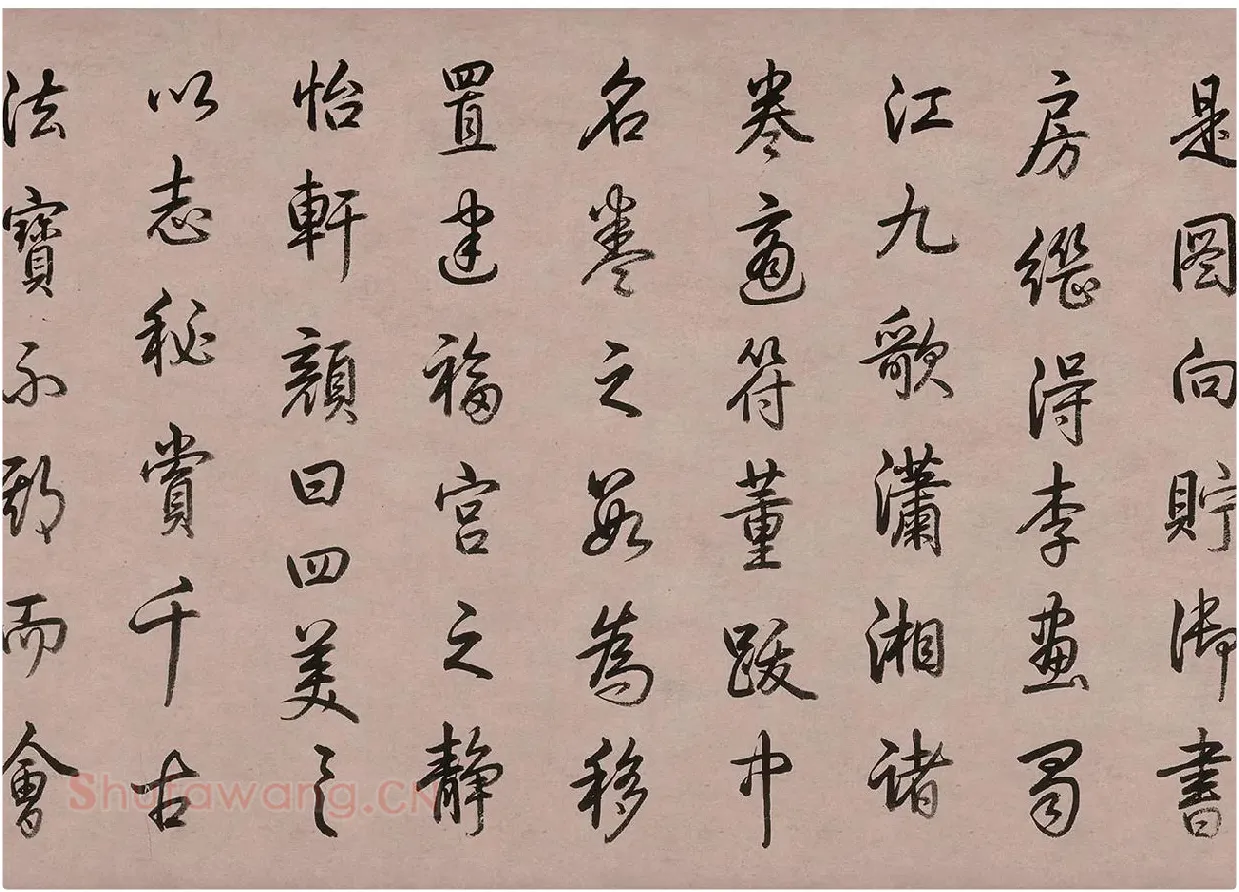 是图向貯御書
房継得李畫蜀
江九歌瀟湘諸
卷適符董跋中
名卷之數為移
置建福宫之静
怡軒顔曰四美之
以志秘賞千古
法寶不期而會
Shufawang.CK